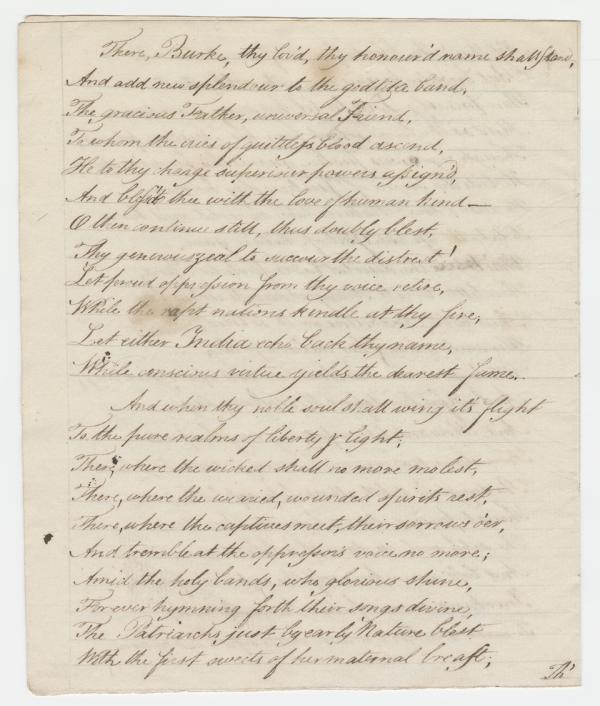 There, Burke, thy lov'd, thy honour'd name shall stand,
And add new splendour to the godlike band.
The gracious Father, universal Friend,
To whom the cries of guiltless blood ascend,
He to thy charge superiour powers assign'd,
And bless'd thee with the love of human kind—
O then continue still, thus doubly blest,
Thy generous zeal to succour the distrest!
Let proud oppression from thy voice retire,
While the rapt nations kindle at thy fire;
Let either India echo back thy name,
While conscious virtue yields the dearest fame.
And when thy noble soul shall wing it's flight
To the pure realms of liberty & light;
There, where the wicked shall no more molest,
There, where the wearied, wounded spirits rest,
There, where the captives meet, their sorrows o'er,
And tremble at the oppressor's voice no more;
Amid the holy bands, who glorious shine,
For ever hymning forth their songs divine,
The Patriarchs just by early Nature blest
With the first sweets of her maternal breast;
Th'